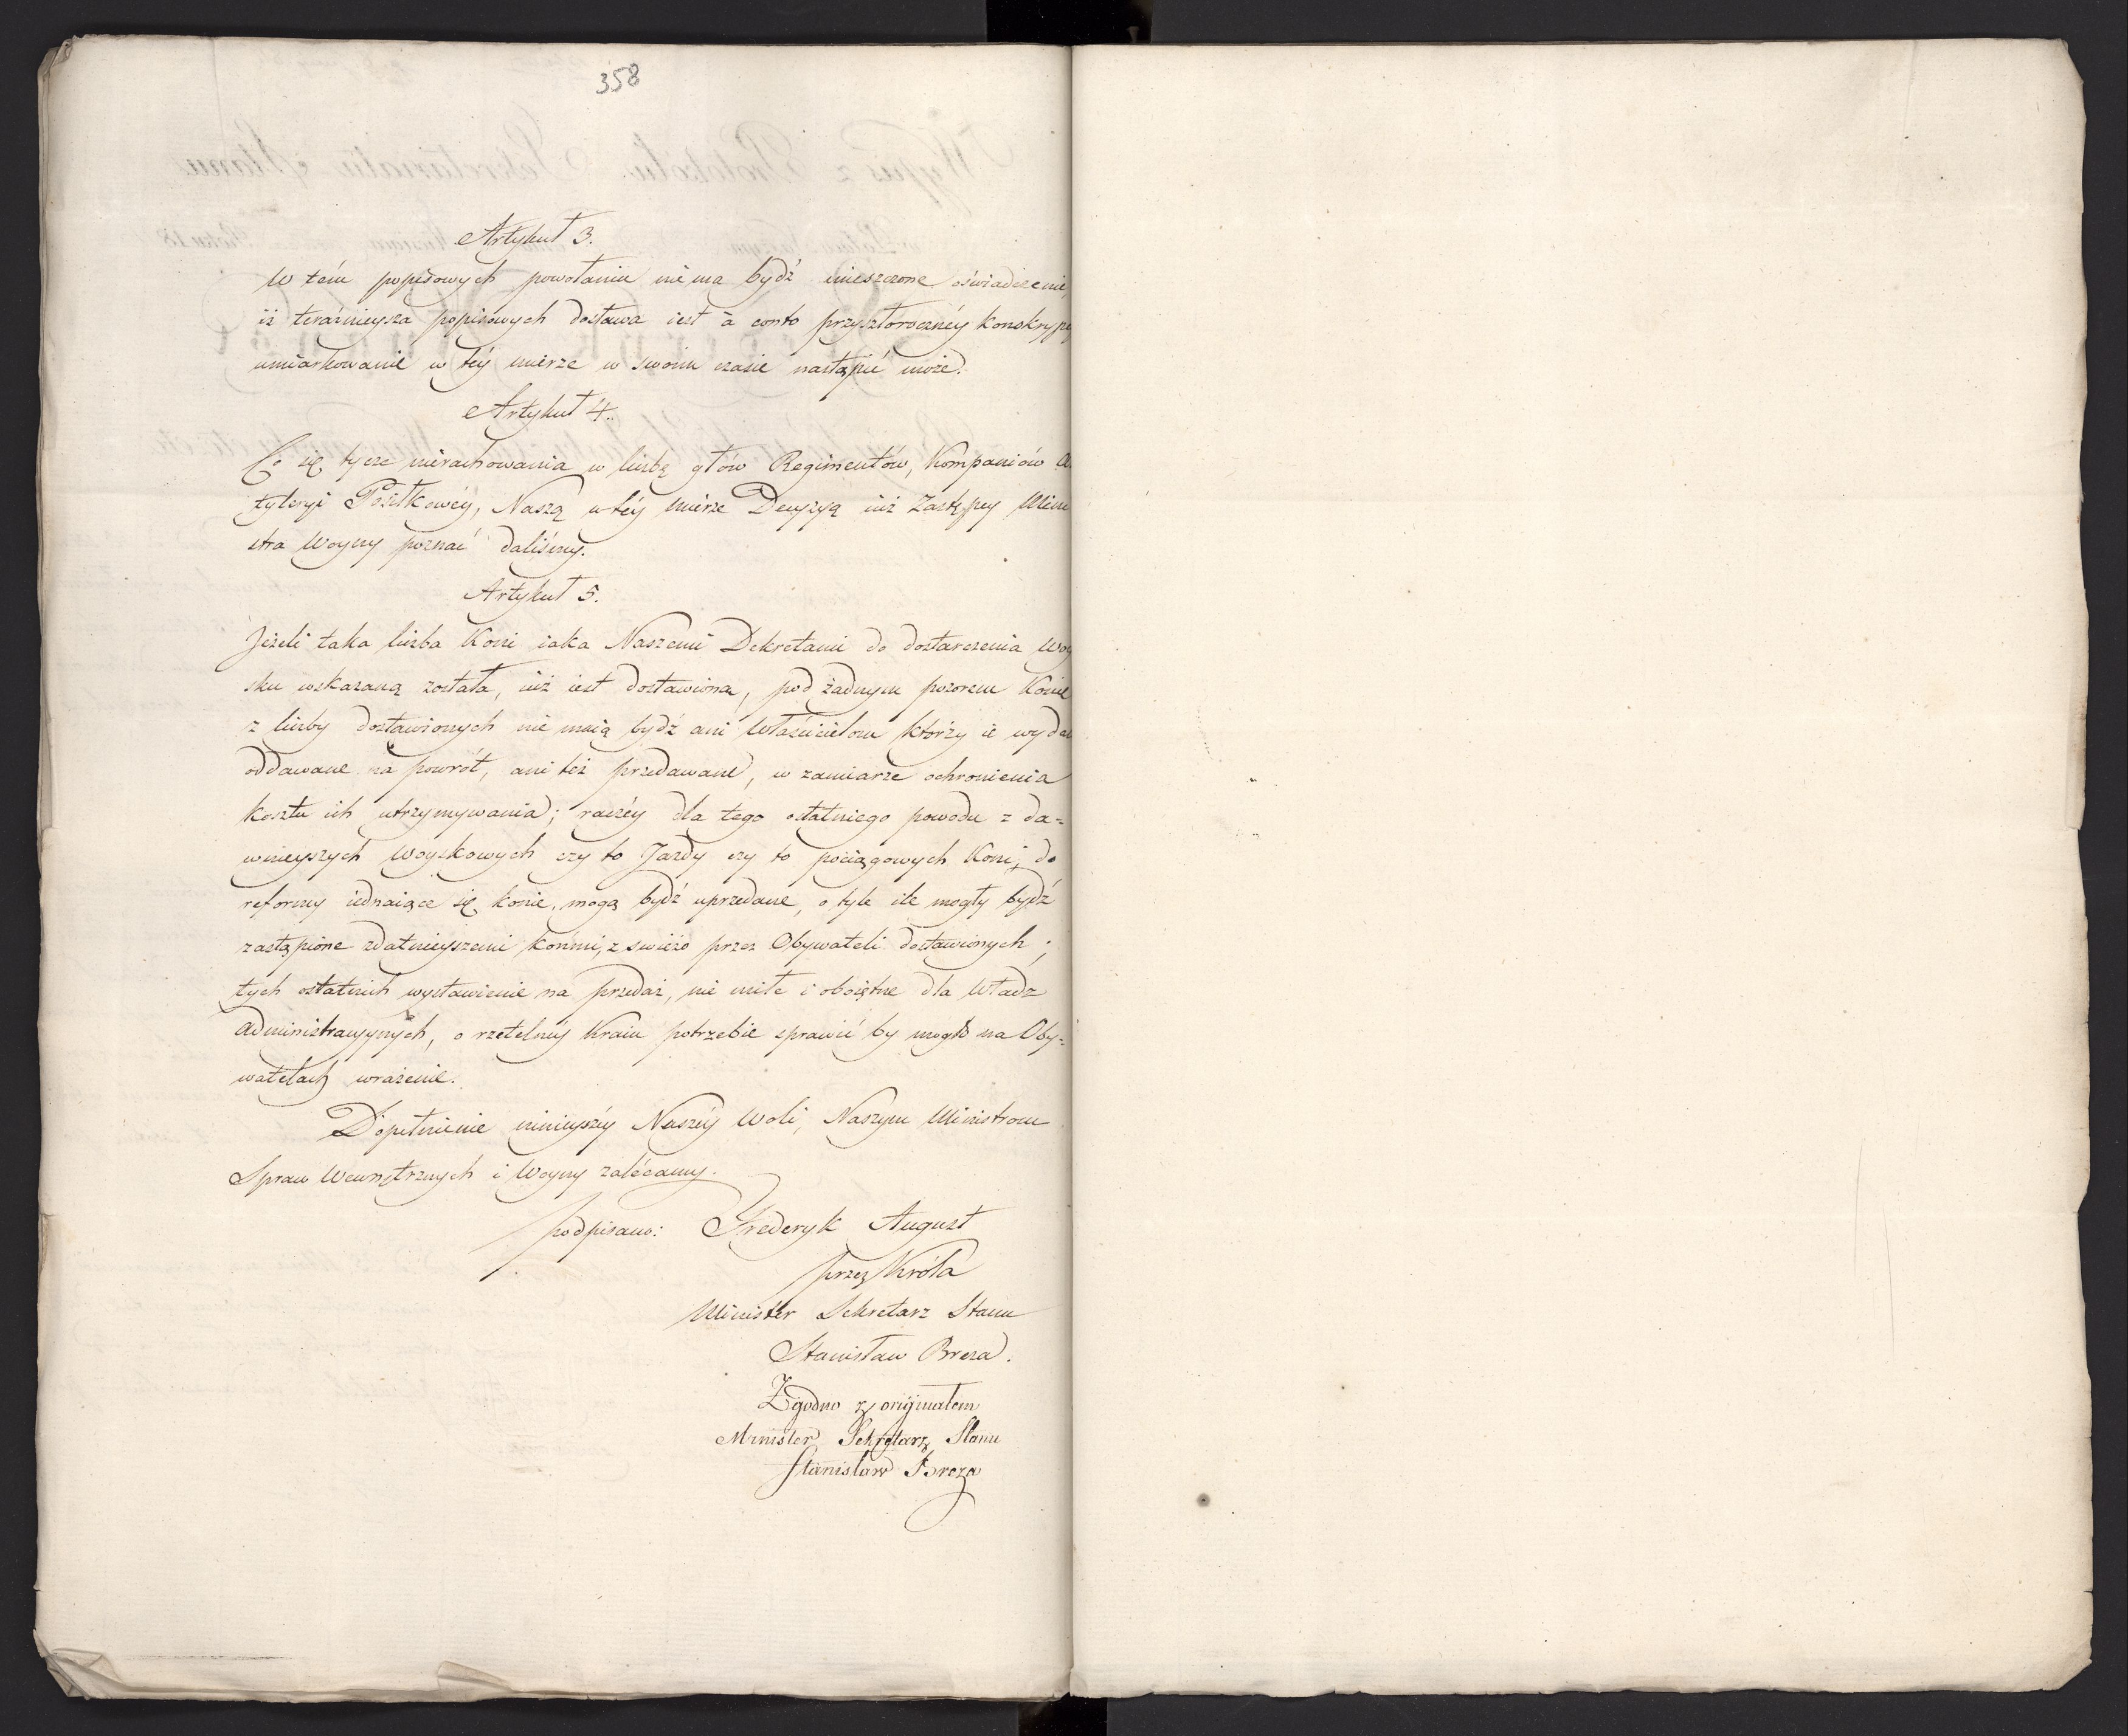 358
Artykuł 3.
W tém popisowych powołaniu nie ma bydź umieszczone oświadczenie,
iż teraźnieysza popisowych dostawa iest à conto przyszłorocznéy konskryp
umiarkowanie w téy mierze w swoim czasie nastąpić może.
Artykuł 4.
Co się tycze nierachowania w liczbę głów Regimentów, Kompaniów A
tyleryi Posiłkowéy, Naszą w téy mierze Decyzyą iuż Zastępcy Mini
stra Woyny poznać daliśmy.
Artykuł 5.
Jeżeli taka liczba Koni iaka Naszemi Dekretami do dostarczenia Woy
sku wskazaną została, iuż iest dostawiona, pod żadnym pozorem Konie
z liczby dostawionych nie maią bydź ani Właścicielom którzy ie wyda
oddawane na powrót, ani też przedawane, w zamiarze ochronienia
kosztu ich utrzymywania; raczéy dla tego ostatniego powodu z da=
wnieyszych Woyskowych czy to Jazdy czy to pociągowych Koni, do
reformy iednaiące się konie, mogą bydź uprzedane, o tyle ile mogły bydź
zastąpione zdatnieyszemi końmi, z świéżo przez Obywateli dostawionych;
tych ostatnich wystawienie na przedaż, nie miłe i oboiętne dla Władz
Administracyynych, o rzetelnéy Kraiu potrzebie sprawić by mogło na Oby=
watelach wrażenie.
Dopełnienie ninieyszéy Naszéy Woli, Naszym Ministrom
Spraw Wewnętrznych i Woyny zalécamy.
podpisano: Frederyk August
przez Króla
Minister Sekretarz Stanu
Stanisław Breza.
Zgodno z oryginałem
Minister Sekretarz Stanu
Stanisław Breza